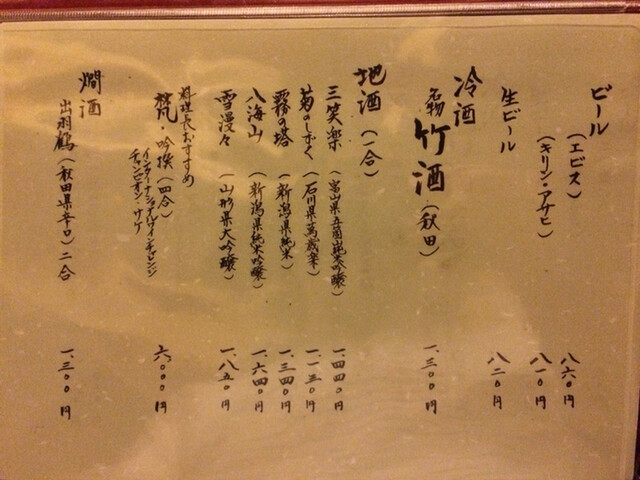 ビール
(エビス) 八六〇円
(キリン・アサヒ) 八一〇円
生ビール 八二〇円
冷酒
名物 竹酒 (秋田) 一、三〇〇円
地酒 (一合)
三笑楽 (富山県五箇山純米吟醸) 一、四四〇円
菊のしずく (石川県萬歳楽) 一、一三〇円
霧の塔 (新潟県純米) 一、三四〇円
八海山 (新潟県純米吟醸) 一、六四〇円
雪漫々 (山形県大吟醸) 一、八五〇円
料理長おすすめ
梵・吟撰 (四合) 六、〇〇〇円
インターナショナルワインチャレンジ
チャンピオン・サケ
燗酒
出羽鶴 (秋田県辛口) 二合 一、三〇〇円